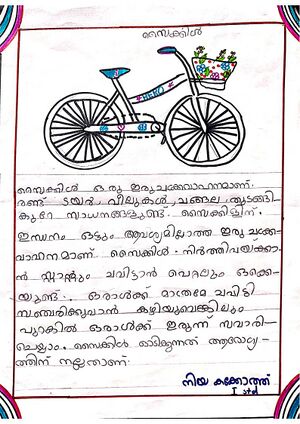 സൈക്കിൾ
HERO
സൈക്കിൾ ഒരു ഇരുചക്രവാഹനമാണ്.
രണ്ട് ടയർ വീലുകൾ ചങ്ങല തുടങ്ങി
കുറേ സാധനങ്ങളുണ്ട്. സൈക്കിളിന്
ഇന്ധനം ഒട്ടും ആവശ്യമില്ലാത്ത ഇരു ചക്ര
വാഹനമാണ് സൈക്കിൾ. നിർത്തിവയ്ക്കാ
ൻ സ്റ്റാന്റും ചവിട്ടാൻ പെഡലും ഒക്കെ
യുണ്ട്. ഒരാൾക്ക് മാത്രമേ ചവിട്ടി
സഞ്ചരിക്കുവാൻ കഴിയുവെങ്കിലും
പുറകിൽ ഒരാൾക്ക് ഇരുന്ന് സവാരി
ചെയ്യാം. സൈക്കിൾ ഓടിക്കുന്നത് ആരോഗ്യ
ത്തിന് നല്ലതാണ്.
നിയ കക്കോത്ത്
I std